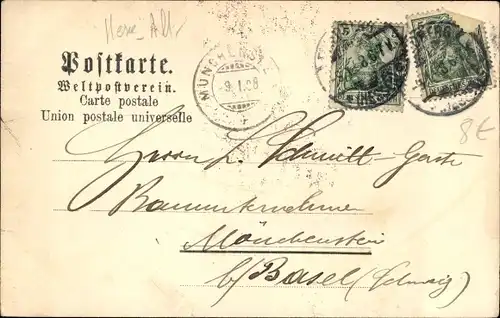 Postkarte.
Weltpostverein.
Carte postale
Union postale universelle
MÜNCHENST
-9.I.08
5
8€
Herrn L. Schmitt-Gaste
Bauunternehmer
Mönchenstein
b/Basel (Schweiz)